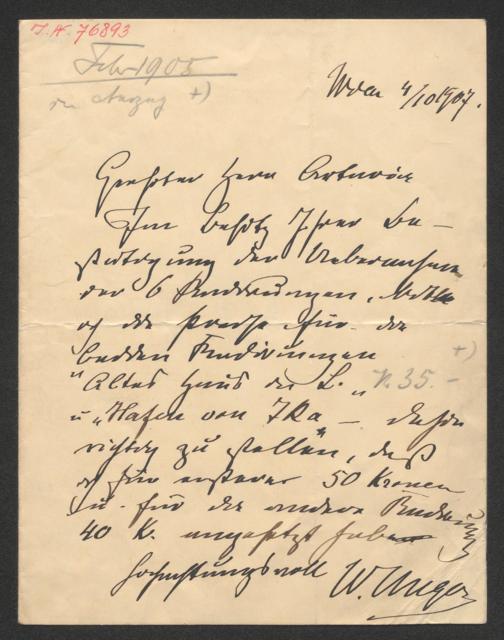 I.N. 76893
Febr 1905
+)
Wien 4/10 1907.
Geehrter Herr Artaria
Im Besitz Ihrer Be-
stätigung der Uebernahme
der 6 Radirungen, bitte
ich die Preise für die
beiden Radirungen +)
"Altes Haus in L. „ K. 35.-
u „Hafen von Ika" – dahin
richtig zu stellen, daß
ich für ersteres 50 Kronen
u. für die andere Radirung
40 K. angesetzt habe
Hochachtungsvoll W. Unger